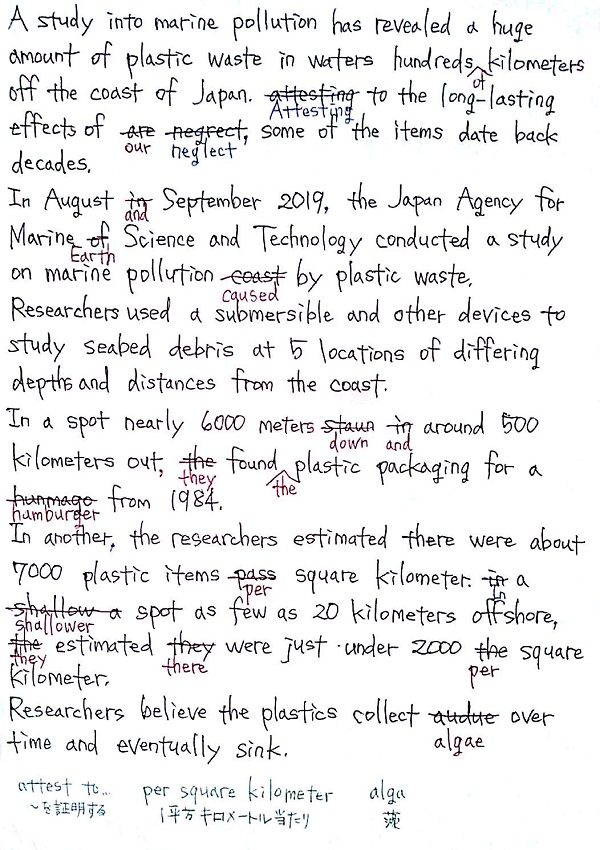 A study into marine pollution has revealed a huge
amount of plastic waste in waters hundreds kilometers
of
off the coast of Japan. attesting to the long-lasting
Attesting
effects of are negrect, some of the items date back
our neglect
decades.
In August in September 2019, the Japan Agency for
and
Marine of Science and Technology conducted a study
Earth
on marine pollution coast by plastic waste.
caused
Researchers used a submersible and other devices to
study seabed debris at 5 locations of differing
depths and distances from the coast.
In a spot nearly 6000 meters staun in around 500
down and
kilometers out, the found plastic packaging for a
they the
hunmago from 1984.
hamburger
In another, the researchers estimated there were about
7000 plastic items pass square kilometer. in a
per In
shallow a spot as few as 20 kilometers offshore,
shallower
the estimated they were just under 2000 the square
they there per
kilometer.
Researchers believe the plastics collect audue over
time and eventually sink.
algae
attest to... per square kilometer alga
〜を証明する 1平方キロメートル当たり 藻